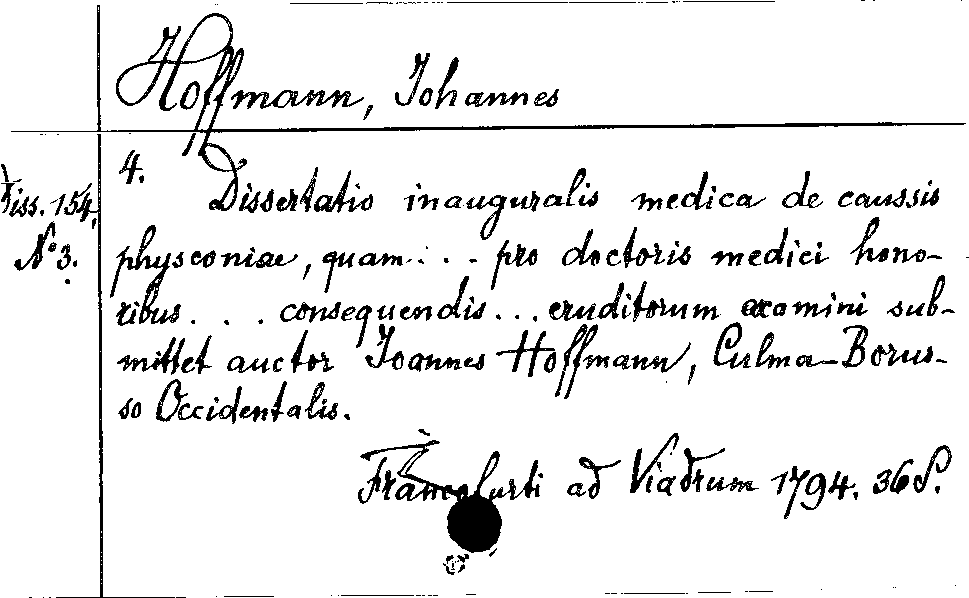 Hoffmann, Johannes
4.
Diss. 154,
No 3.
Dissertatio inauguralis medica de caussis
physconiae, quam . . . pro doctoris medici hono-
ribus . . . consequendis . . . eruditorum examini sub-
mittet auctor Joannes Hoffmann, Culma-Borus-
so Occidentalis.
Francofurti ad Viadrum 1794. 36 S.